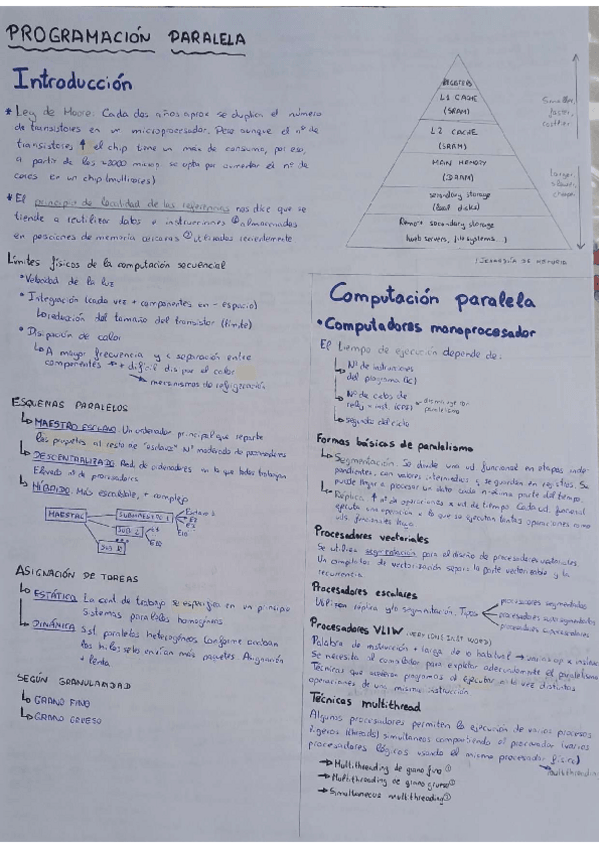 PROGRAMACIÓN PARALELA
Introducción
* Ley de Moore: Cada dos años aprox se duplica el número
de transistores en un microprocesador. Pese aunque el nº de
transistores ↑ el chip tiene un máx de consumo, por eso,
a partir de los ≈2000 microp. se opta por aumentar el nº de
cores en un chip (multicores)
* El principio de localidad de las referencias nos dice que se
tiende a reutilizar datos e instrucciones ① almacenados
en posiciones de memoria cercanas ② utilizados recientemente
Límites físicos de la computación secuencial
• Velocidad de la luz
• Integración (cada vez + componentes en - espacio)
↳ reducción del tamaño del transistor (límite)
• Disipación de calor
↳ A mayor frecuencia y < separación entre
componentes → + difícil disipar el calor
→ mecanismos de refrigeración
ESQUEMAS PARALELOS
↳ MAESTRO ESCLAVO Un ordenador principal que reparte
los paquetes al resto de "esclavos" Nº moderado de procesadores
↳ DESCENTRALIZADO Red de ordenadores en la que todos trabajan
Elevado nº de procesadores
↳ HÍBRIDO Más escalable, + complejo
MAESTRO
SUBMAESTRO 1
Esclavo 1
E2
E3
SUB. 2
E10
SUB K
ASIGNACIÓN DE TAREAS
↳ ESTÁTICO La cant de trabajo se especifica en un principio
Sistemas paralelos homogéneos
↳ DINÁMICA Sist. paralelos heterogéneos Conforme acaban
los hilos se lo envían más paquetes. Asignación
+ lenta
SEGÚN GRANULARIDAD
↳ GRANO FINO
↳ GRANO GRUESO
REGISTERS
L1 CACHE
(SRAM)
L2 CACHE
(SRAM)
MAIN MEMORY
(DRAM)
secondary storage
(local disks)
Remote secondary storage
(web servers, file systems...)
Smaller,
faster,
costlier
larger,
slower,
cheaper
JERARQUÍA DE MEMORIA
Computación paralela
• Computadores monoprocesador
El tiempo de ejecución depende de:
↳ Nº de instrucciones
del programa (IC)
↳ Nº de ciclos de
reloj x inst (CPI) → disminuye con
paralelismo
↳ segundo del ciclo
Formas básicas de paralelismo
↳ Segmentación. Se divide una ud funcional en etapas inde-
pendientes, con valores intermedios y se guardan en registros. Se
puede llegar a procesar un dato cada n-ésima parte del tiempo.
↳ Réplica. ↑ nº de operaciones x ud de tiempo. Cada ud funcional
ejecuta una operación x lo que se ejecutan tantas operaciones como
uds funcionales haya
Procesadores vectoriales
Se utiliza segmentación para el diseño de procesadores vectoriales
Un compilador de vectorización separa la parte vectorizable y la
recurrencia.
Procesadores escalares
Utilizan réplica y/o segmentación. Tipos
procesadores segmentados
procesadores supersegmentados
procesadores superescalares
Procesadores VLIW (VERY LONG INST WORD)
Palabra de instrucción + larga de lo habitual → varias op x instruc
Se necesita al compilador para explotar adecuadamente el paralelismo
Técnicas que aceleran programas al ejecutar a la vez distintas
operaciones de una misma instrucción
Técnicas multithread
Algunos procesadores permiten la ejecución de varios procesos
ligeros (threads) simultáneos compartiendo el procesador (varios
procesadores lógicos usando el mismo procesador físico)
→ Multithreading
→ Multithreading de grano fino ①
→ Multithreading de grano grueso ②
→ Simultaneous multithreading ③